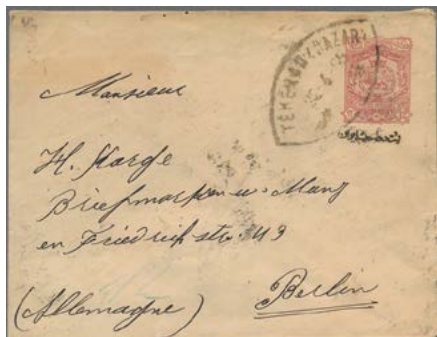 TEHERAN (BAZAR)
Monsieur
H. Karge
Briefmarken u.
en Friedrich str. 43
Berlin
(Allemagne)